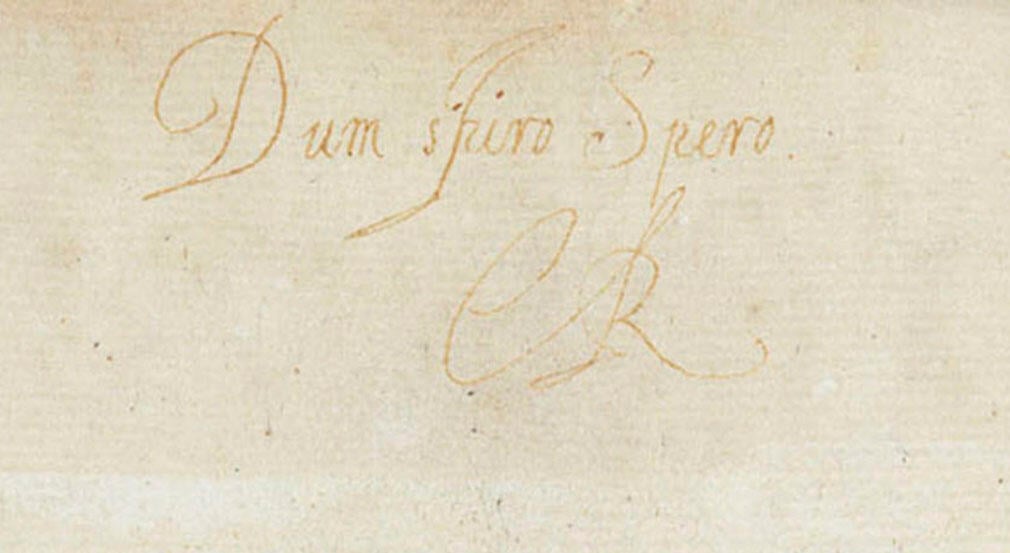 Dum spiro Spero.
CR